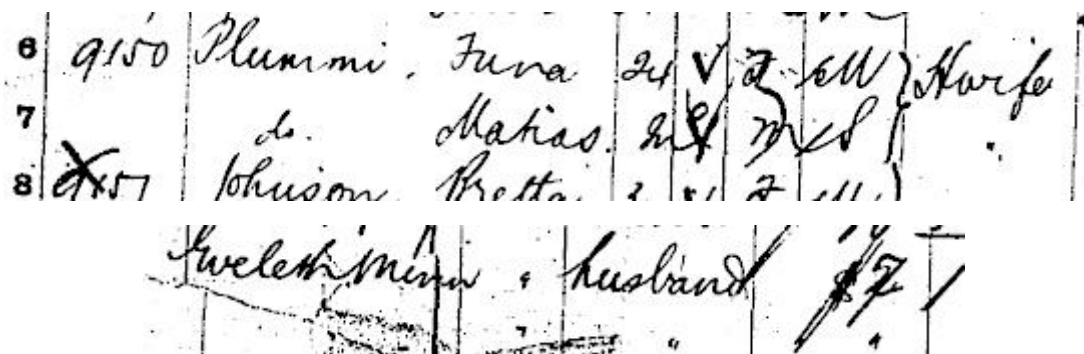 6 9150 Plummi. Fuva 24 F M Hwife
7 do. Matias. m S "
8 9151 Johnson Bretta F M
Eveleth Minn " husband $7
" " "